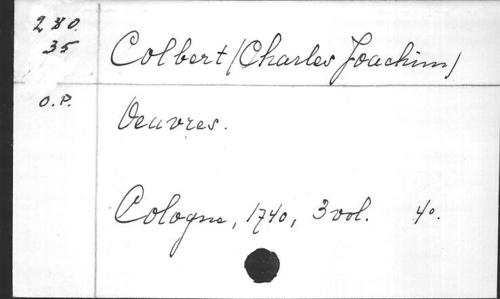 280.
35
Colbert (Charles Joachim)
O.P.
Oeuvres.
Cologne, 1740, 3 vol. 4o.